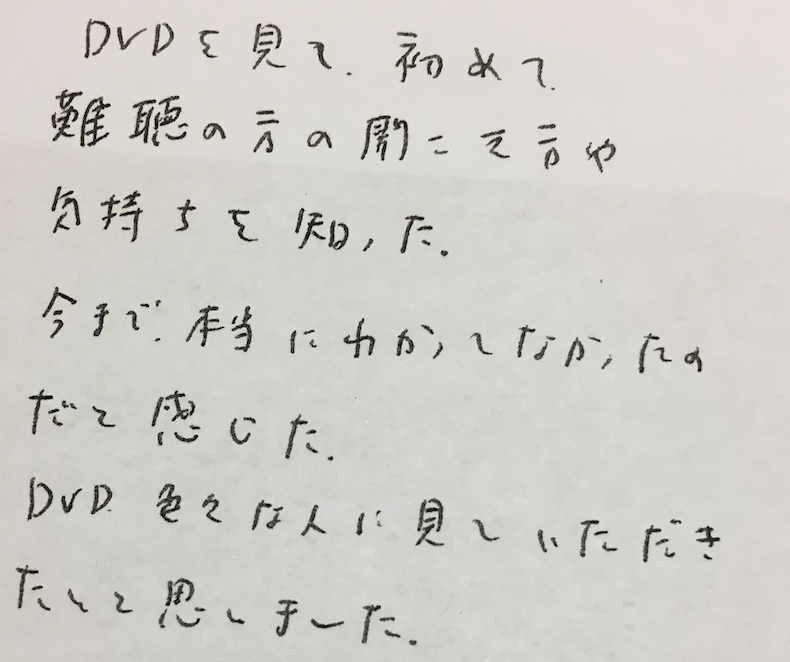 DVDを見て、初めて
難聴の方の聞こえ方や
気持ちを知った。
今まで、本当にわかってなかったの
だと感じた。
DVD 色々な人に見ていただき
たいと思いました。